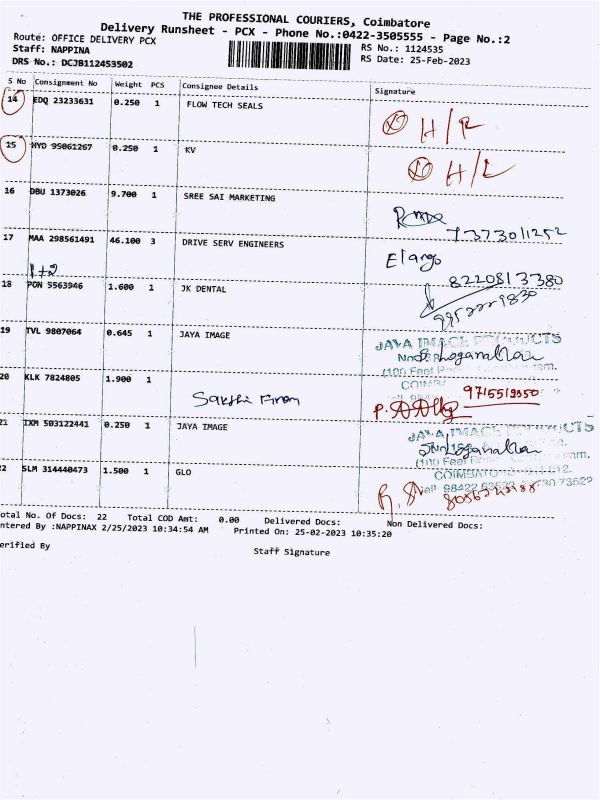 THE PROFESSIONAL COURIERS, Coimbatore
Delivery Runsheet - PCX - Phone No.:0422-3505555 - Page No.:2
Route: OFFICE DELIVERY PCX
RS No.: 1124535
Staff: NAPPINA
RS Date: 25-Feb-2023
DRS No.: DCJB112453502
S No Consignment No Weight PCS Consignee Details Signature
14 EDQ 23233631 0.250 1 FLOW TECH SEALS
H/R
15 HYD 95061267 0.250 1 KV
H/L
16 DBU 1373026 9.700 1 SREE SAI MARKETING
7373011252
17 MAA 298561491 46.100 3 DRIVE SERV ENGINEERS
Elango
1+2
8220813380
18 PON 5563946 1.600 1 JK DENTAL
19 TVL 9807064 0.645 1 JAYA IMAGE
JAYA IMAGE PRODUCTS
(100 Feet
20 KLK 7824805 1.900 1
9715512350
21 IXM 503122441 0.250 1 JAYA IMAGE
JAYA IMAGE PRODUCTS
(100 Feet
22 SLM 314440473 1.500 1 GLO
otal No. of Docs: 22 Total COD Amt: 0.00 Delivered Docs: Non Delivered Docs:
ntered By :NAPPINAX 2/25/2023 10:34:54 AM Printed On: 25-02-2023 10:35:20
erified By
Staff Signature